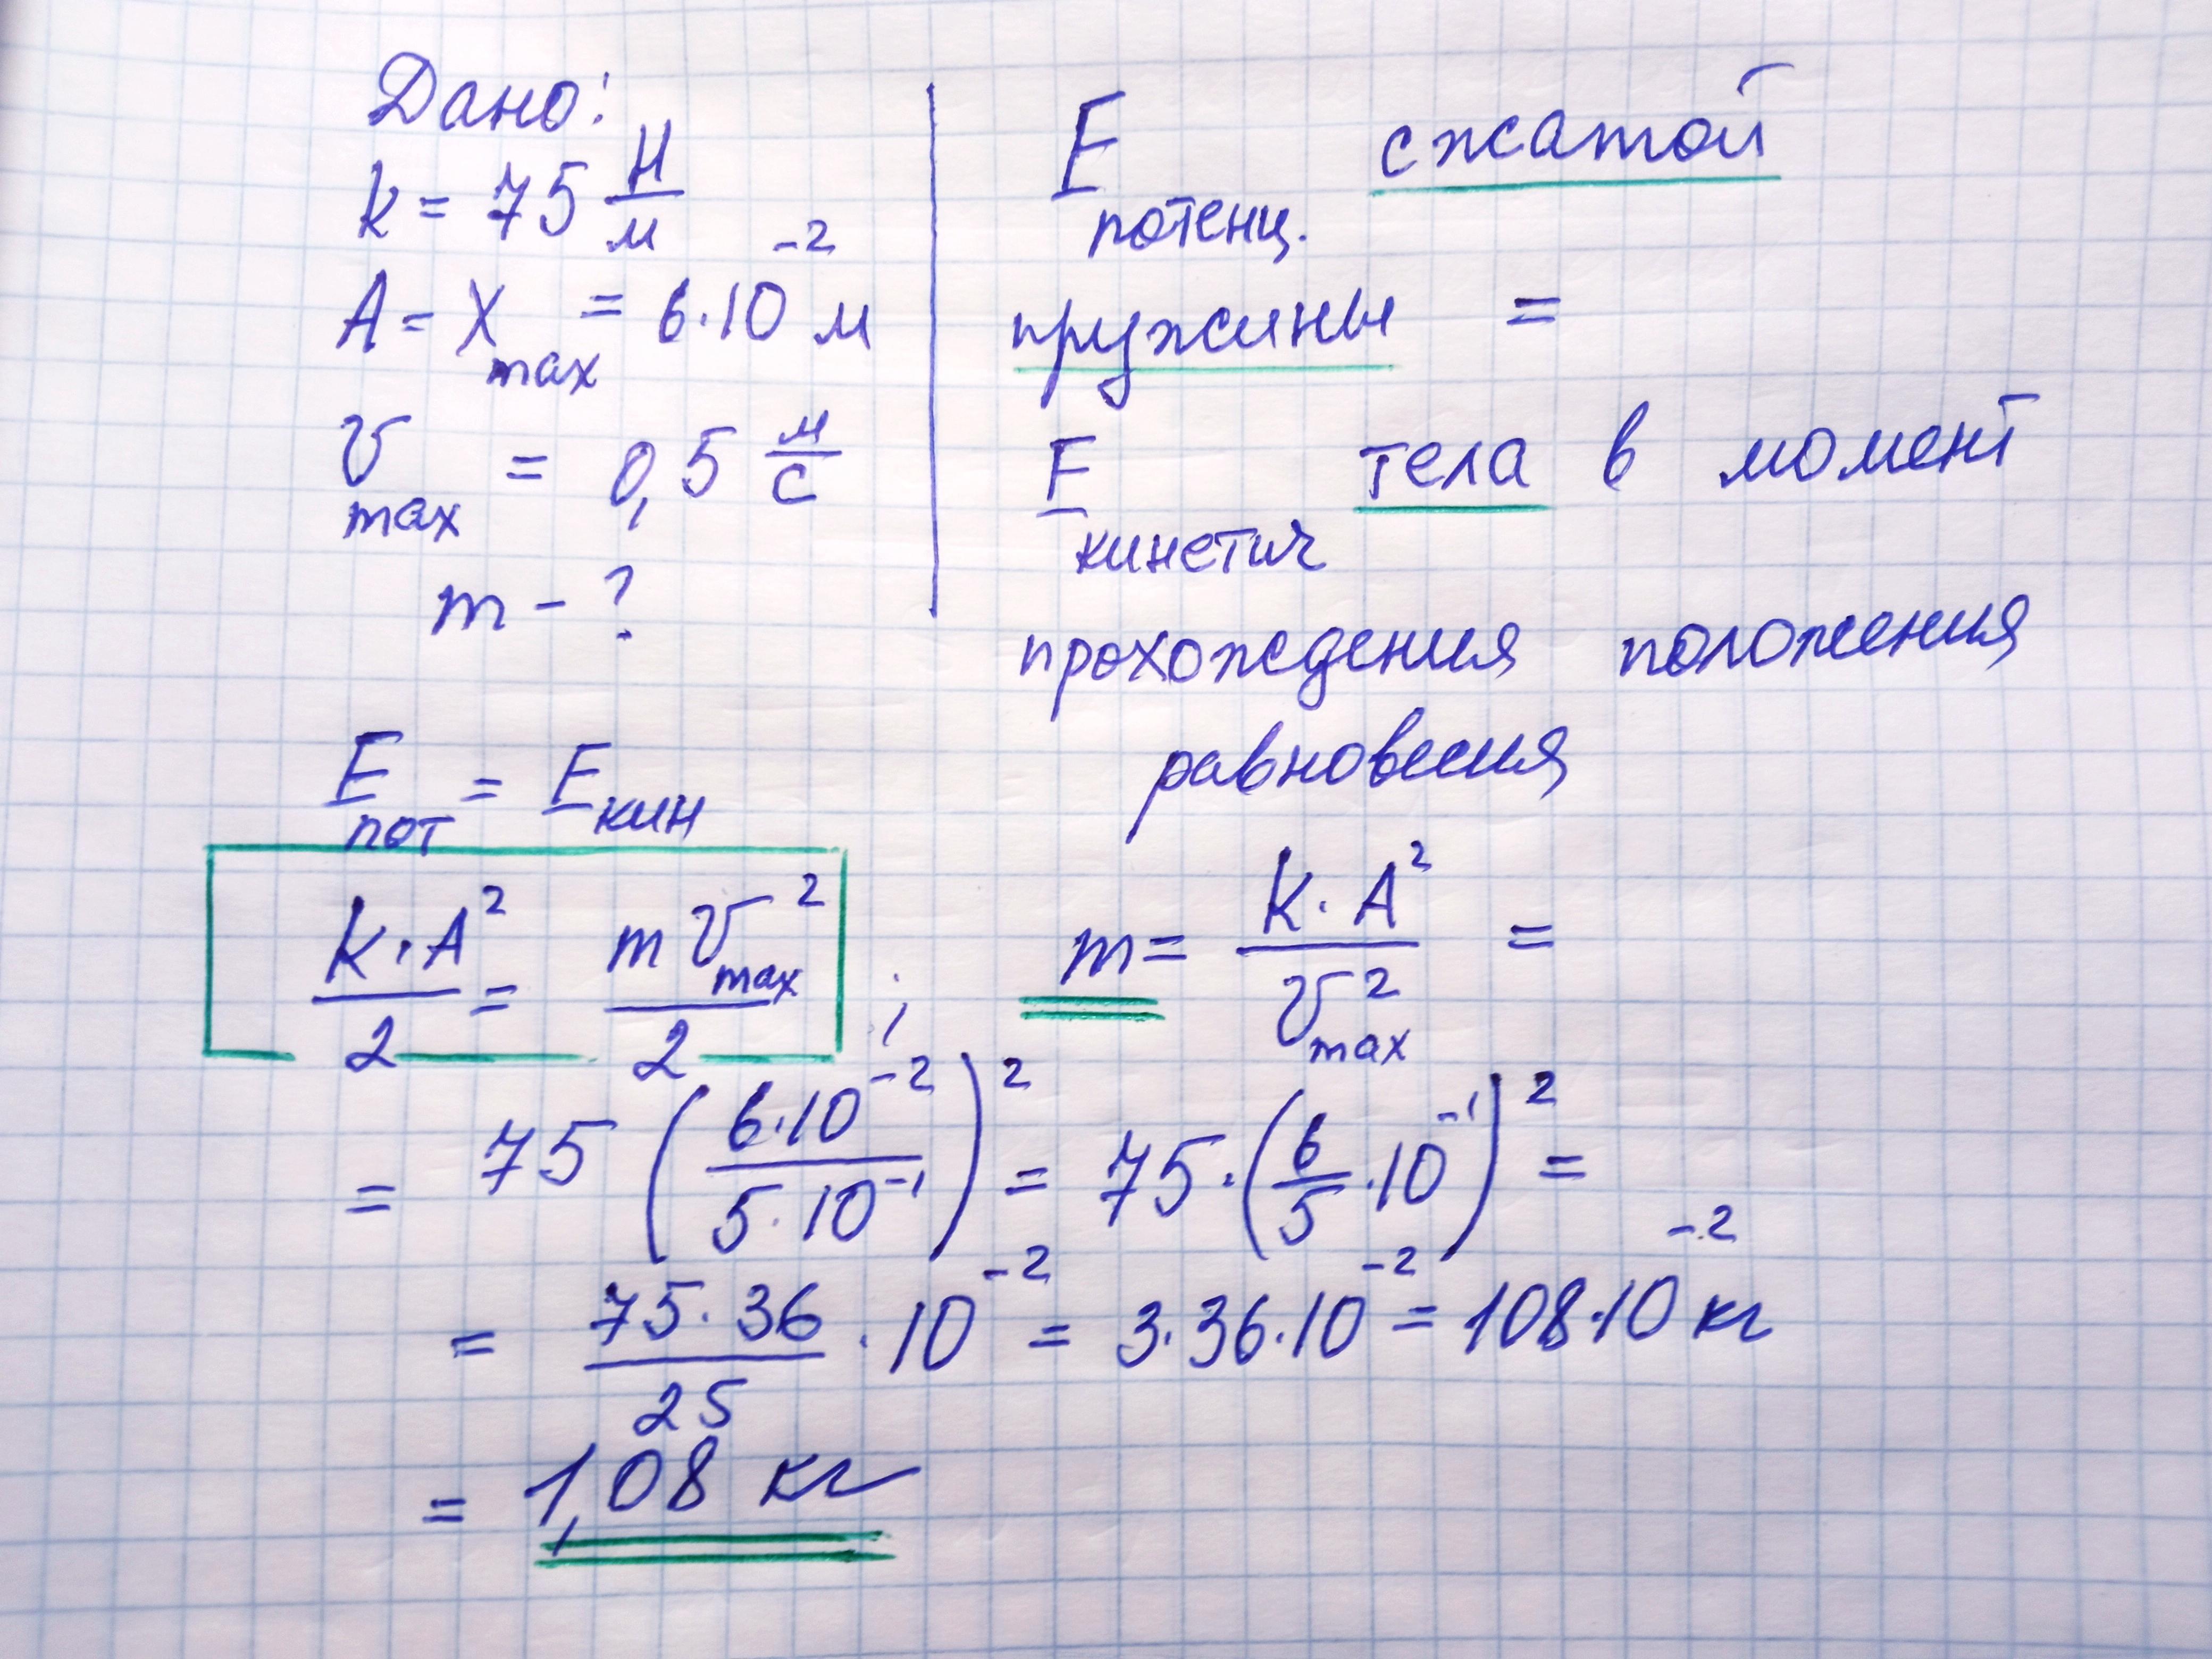 Дано:
k = 75 Н/м
A = X max = 6·10⁻² м
v max = 0,5 м/с
m - ?
E потенц. сжатой
пружины =
E кинетич тела в момент
прохождения положения
равновесия
E пот = E кин
k·A²/2 = m v max²/2 ; m = k·A²/v max² =
= 75 (6·10⁻²/5·10⁻¹)² = 75·(6/5·10⁻¹)² =
= 75·36/25 ·10⁻² = 3·36·10⁻² = 108·10⁻² кг
= 1,08 кг